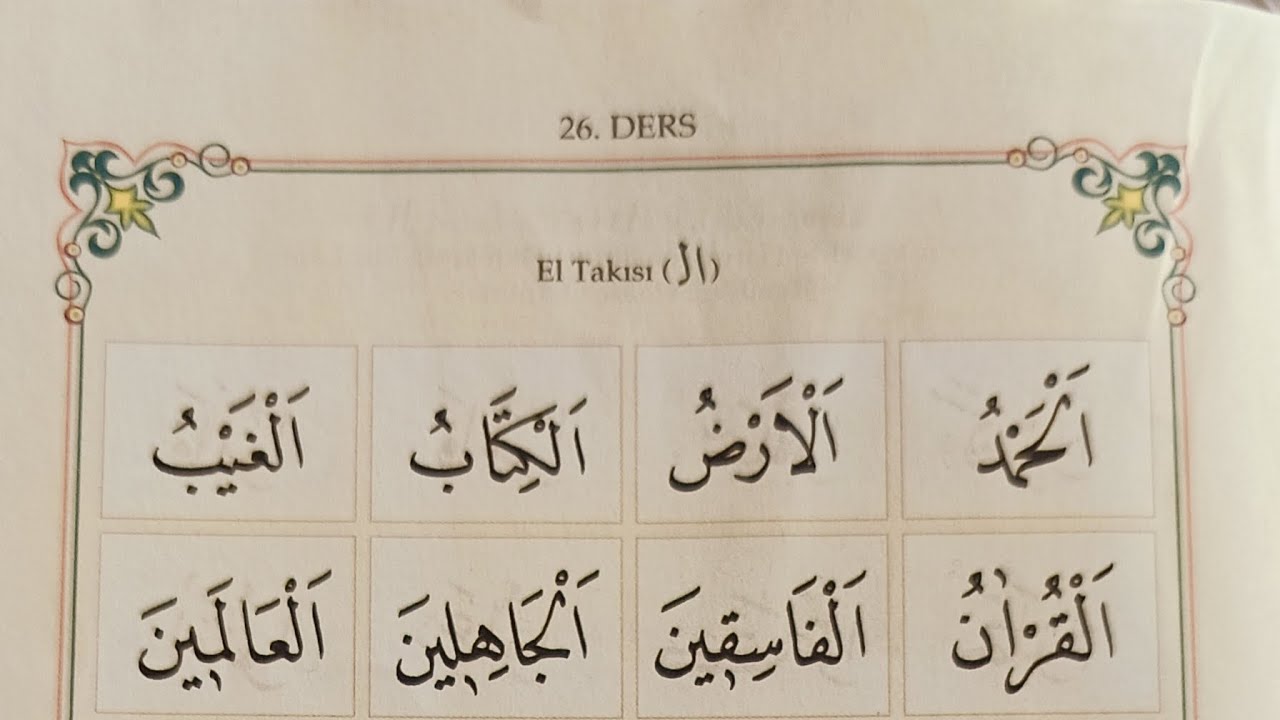 26. DERS
El Takısı (ال)
اَلْحَمْدُ اَلْاَرْضُ اَلْكِتَابُ اَلْغَيْبُ
اَلْقُرْاٰنُ اَلْفَاسِقٖينَ اَلْجَاهِلٖينَ اَلْعَالَمٖينَ